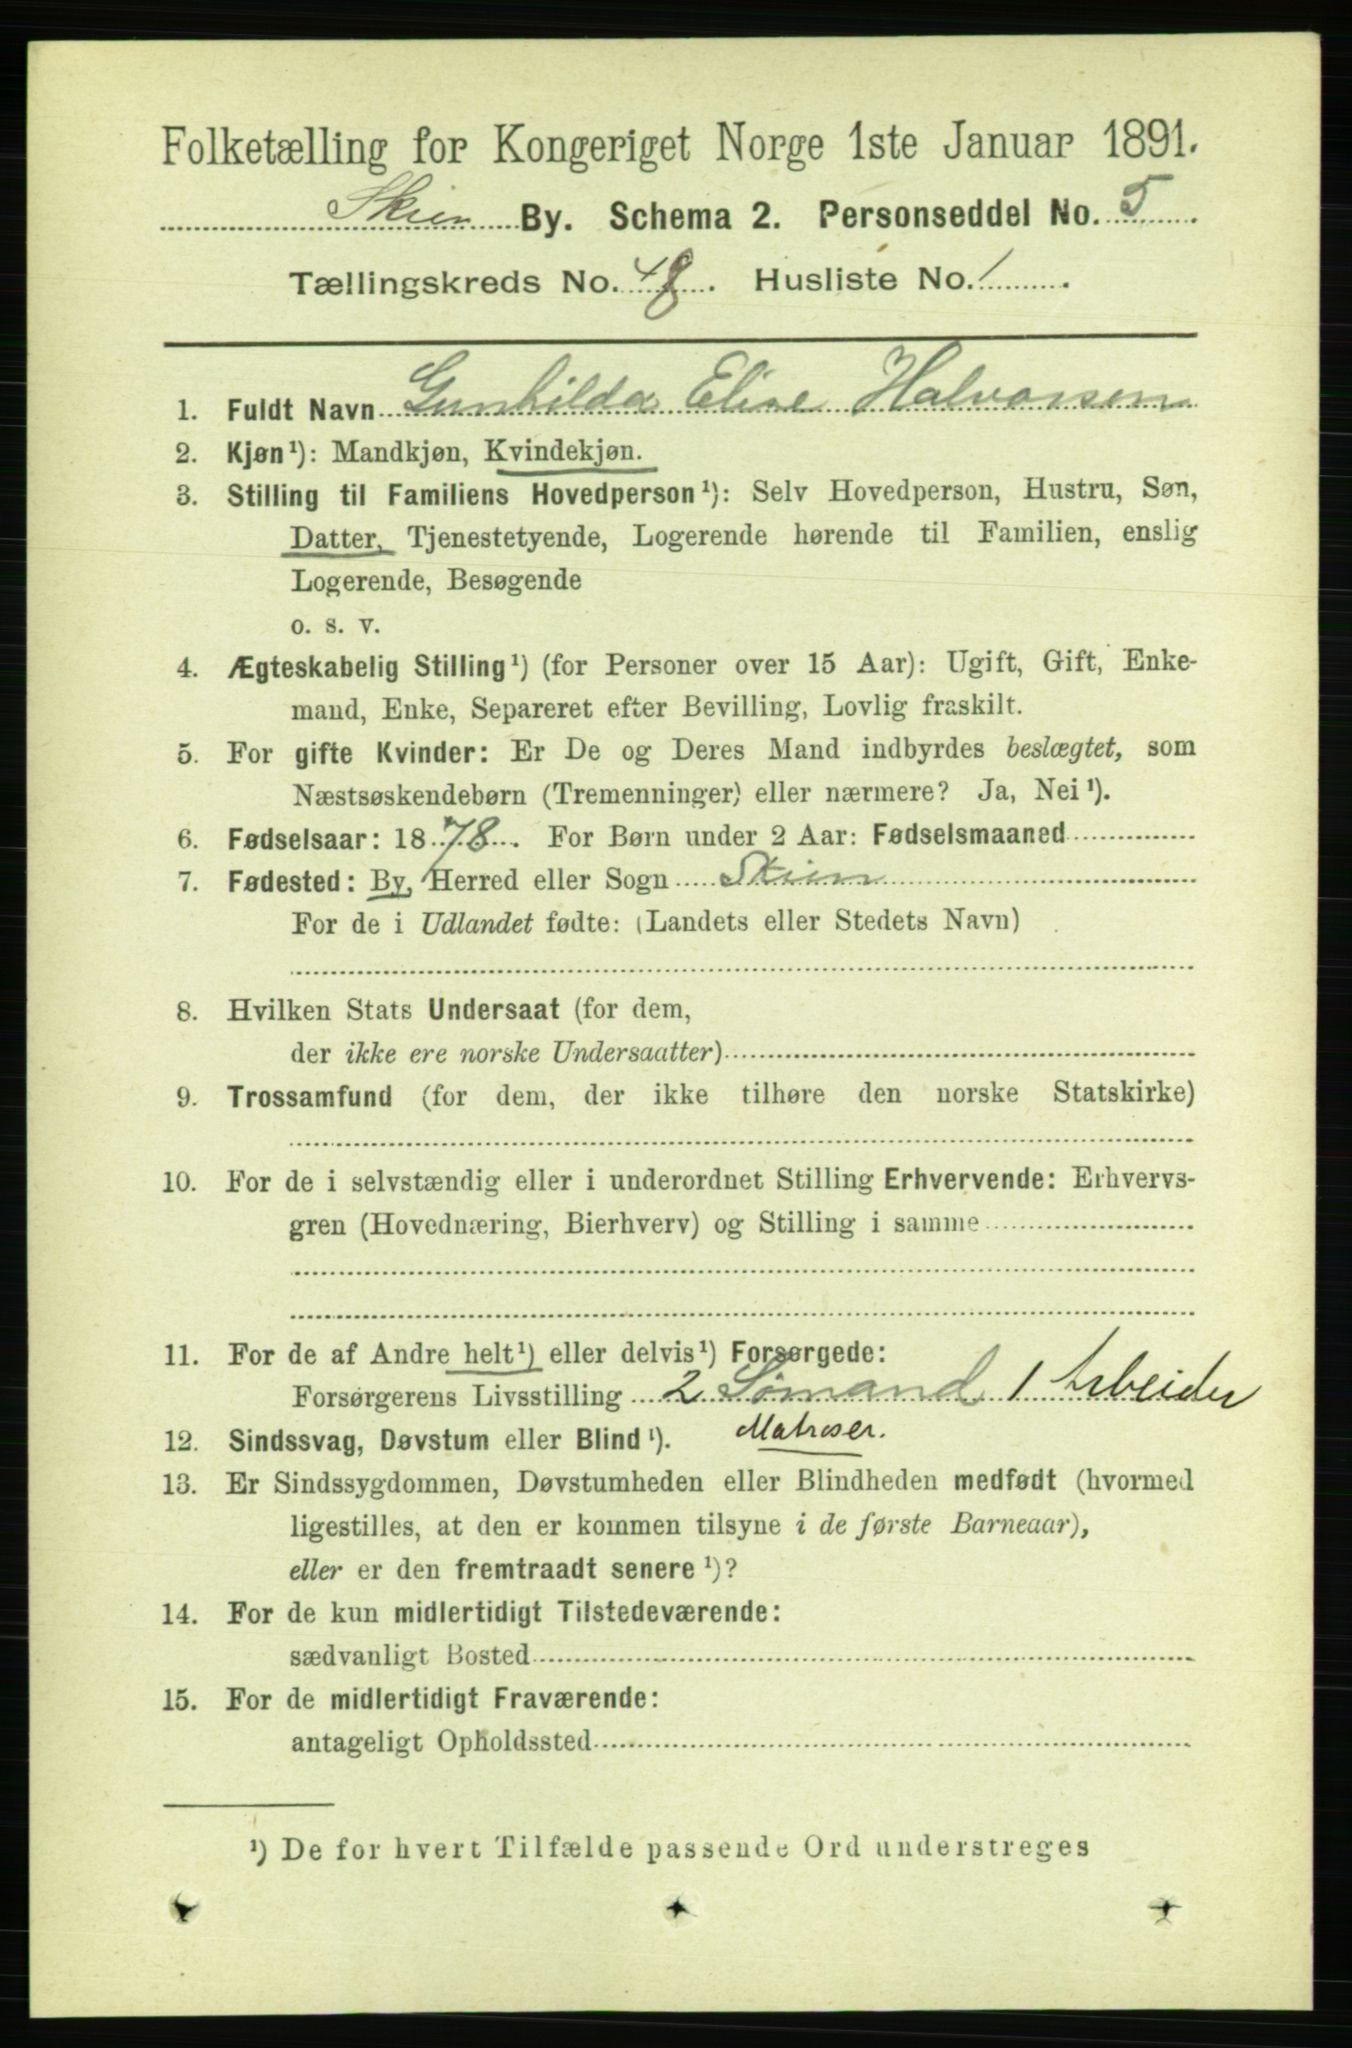 Folketælling for Kongeriget Norge 1ste Januar 1891.
Skien By. Schema 2. Personseddel No. 5
Tællingskreds No. 48. Husliste No. 1.
1. Fuldt Navn Gunhilda Eline Halvorsen
2. Kjøn¹): Mandkjøn, Kvindekjøn.
3. Stilling til Familiens Hovedperson¹): Selv Hovedperson, Hustru, Søn,
Datter, Tjenestetyende, Logerende hørende til Familien, enslig
Logerende, Besøgende
o. s. v.
4. Ægteskabelig Stilling¹) (for Personer over 15 Aar): Ugift, Gift, Enke-
mand, Enke, Separeret efter Bevilling, Lovlig fraskilt.
5. For gifte Kvinder: Er De og Deres Mand indbyrdes beslægtet, som
Næstsøskendebørn (Tremenninger) eller nærmere? Ja, Nei¹).
6. Fødselsaar: 1878. For Børn under 2 Aar: Fødselsmaaned
7. Fødested: By, Herred eller Sogn Skien
For de i Udlandet fødte: (Landets eller Stedets Navn)
8. Hvilken Stats Undersaat (for dem,
der ikke ere norske Undersaatter)
9. Trossamfund (for dem, der ikke tilhøre den norske Statskirke)
10. For de i selvstændig eller i underordnet Stilling Erhvervende: Erhvervs-
gren (Hovednæring, Bierhverv) og Stilling i samme
11. For de af Andre helt¹) eller delvis¹) Forsørgede:
Forsørgerens Livsstilling 2 Sømand 1 Arbeider
Matroser.
12. Sindssvag, Døvstum eller Blind¹).
13. Er Sindssygdommen, Døvstumheden eller Blindheden medfødt (hvormed
ligestilles, at den er kommen tilsyne i de første Barneaar),
eller er den fremtraadt senere¹)?
14. For de kun midlertidigt Tilstedeværende:
sædvanligt Bosted
15. For de midlertidigt Fraværende:
antageligt Opholdssted
¹) De for hvert Tilfælde passende Ord understreges